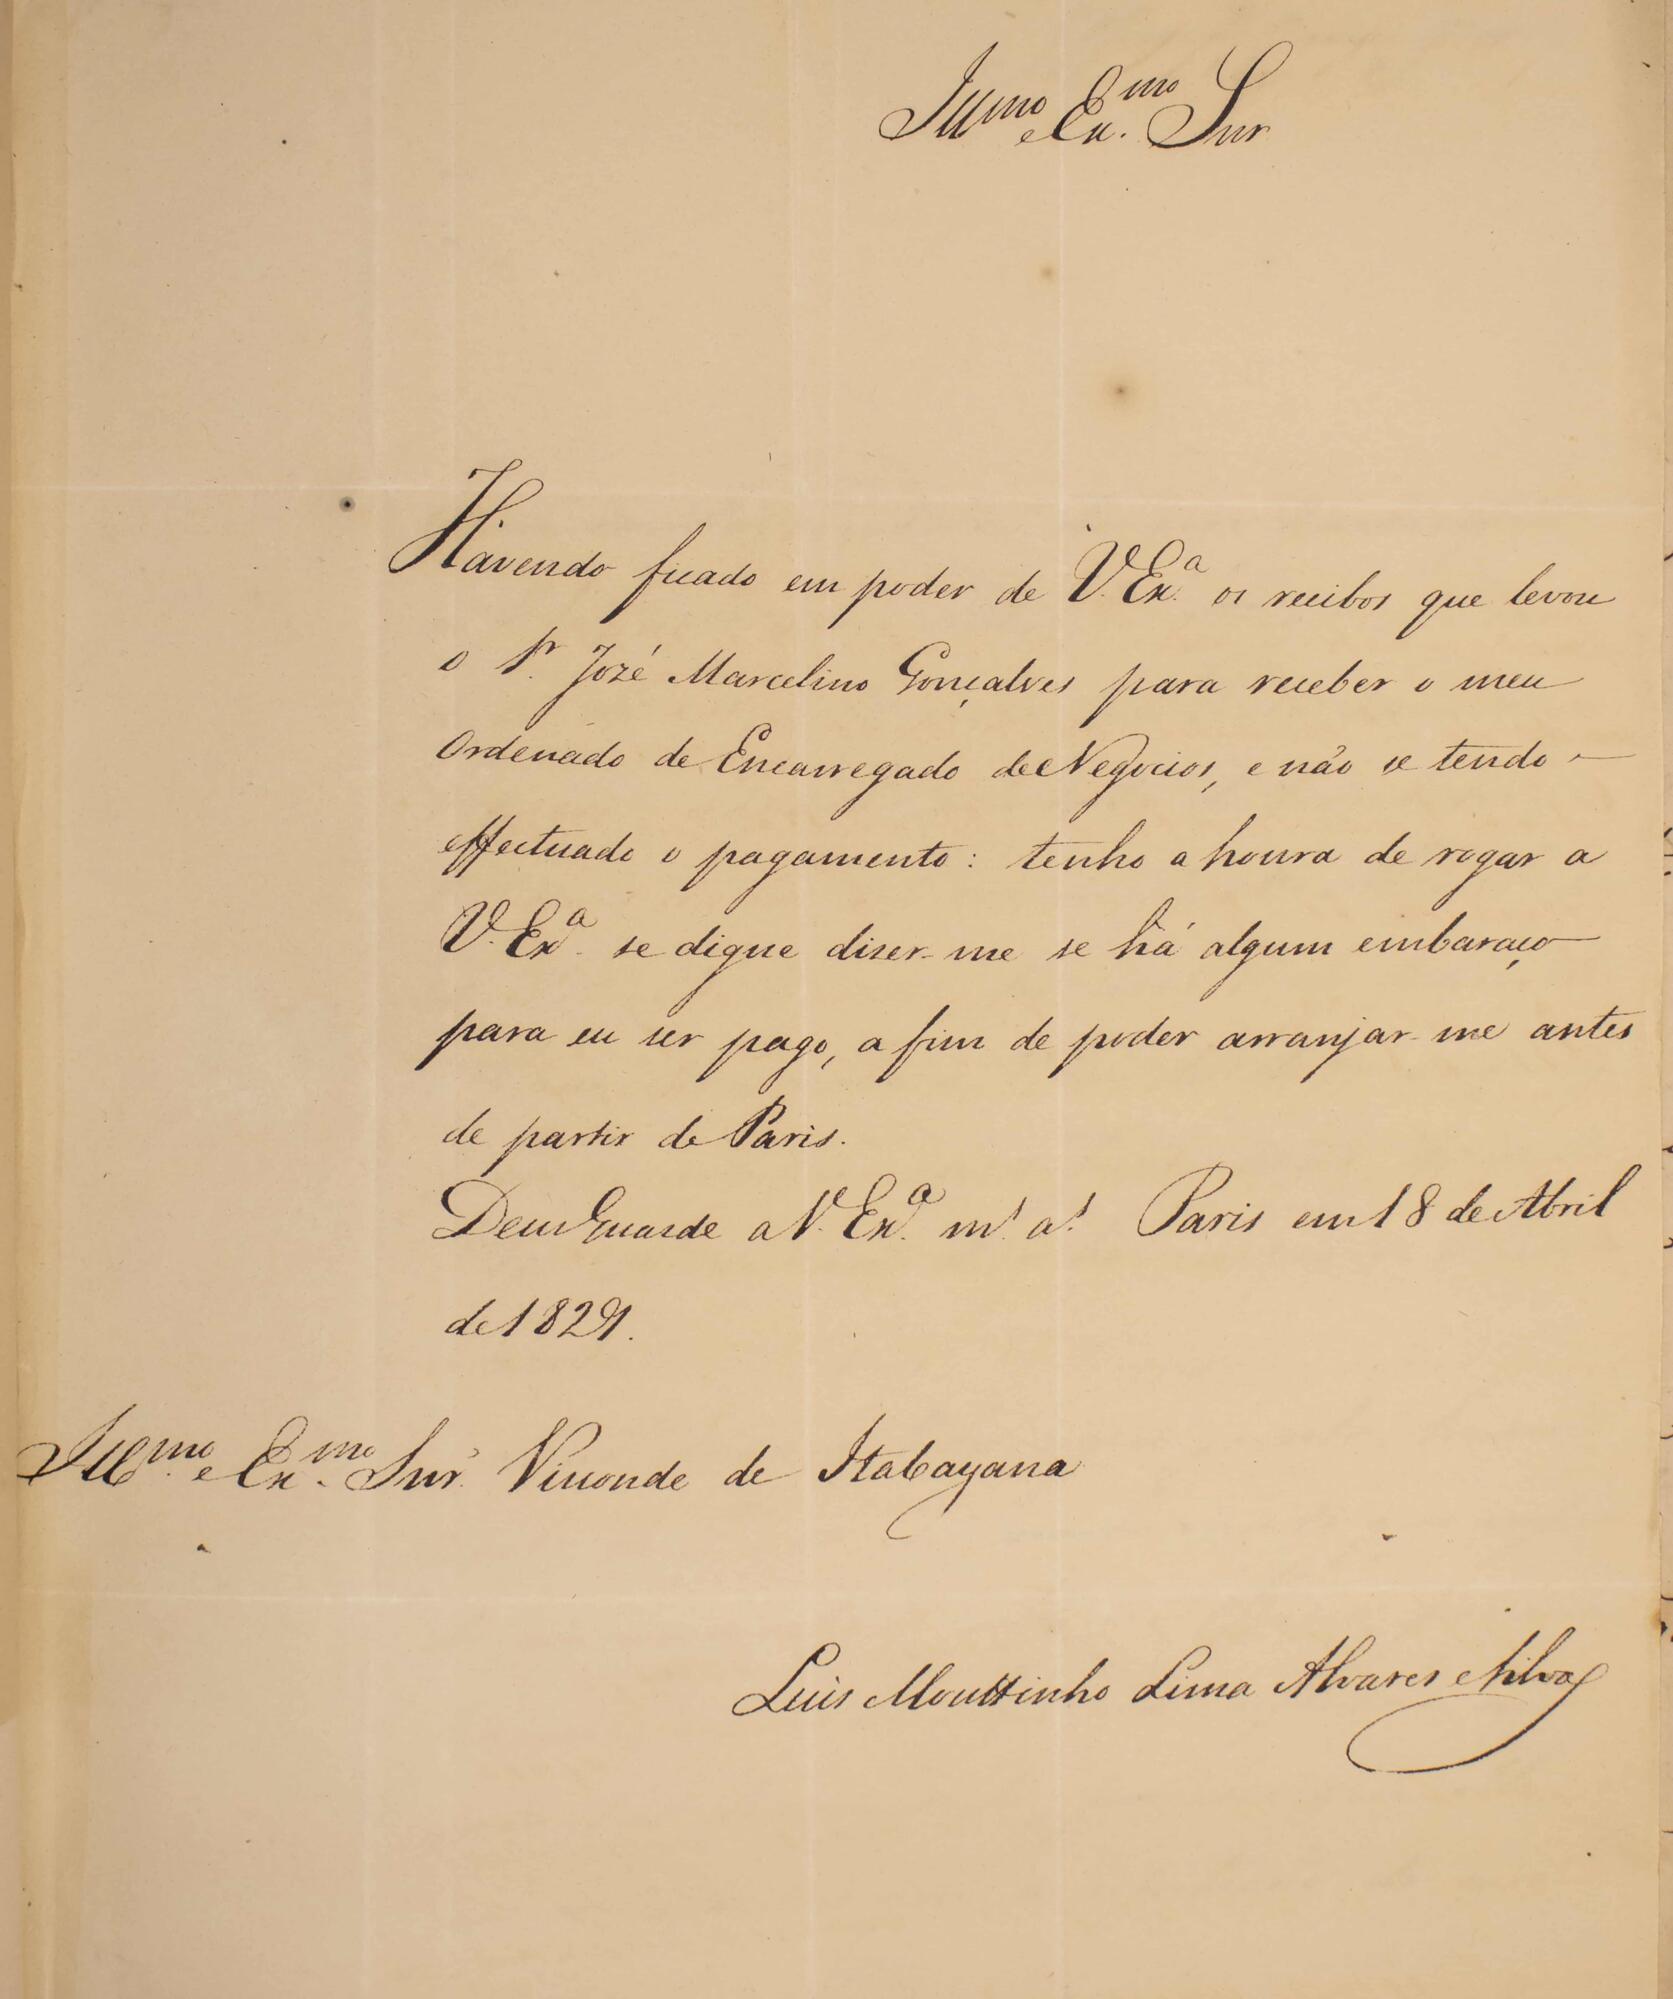 Illmo e Ex.mo Snr
Havendo ficado em poder de V. Ex.a os recibos que levou
o Sr. Jozé Marcelino Gonçalves para receber o meu
Ordenado de Encarregado de Negocios, e não se tendo
effectuado o pagamento: tenho a honra de rogar a
V. Ex.a se digne diser-me se há algum embaraço
para eu ser pago, a fim de poder arranjar-me antes
de partir de Paris.
Deus Guarde a V. Ex.a m.s a.s Paris em 18 de Abril
de 1829.
Ill.mo e Ex.mo Snr. Visconde de Itabayana
Luis Mouttinho Lima Alvares e Silva